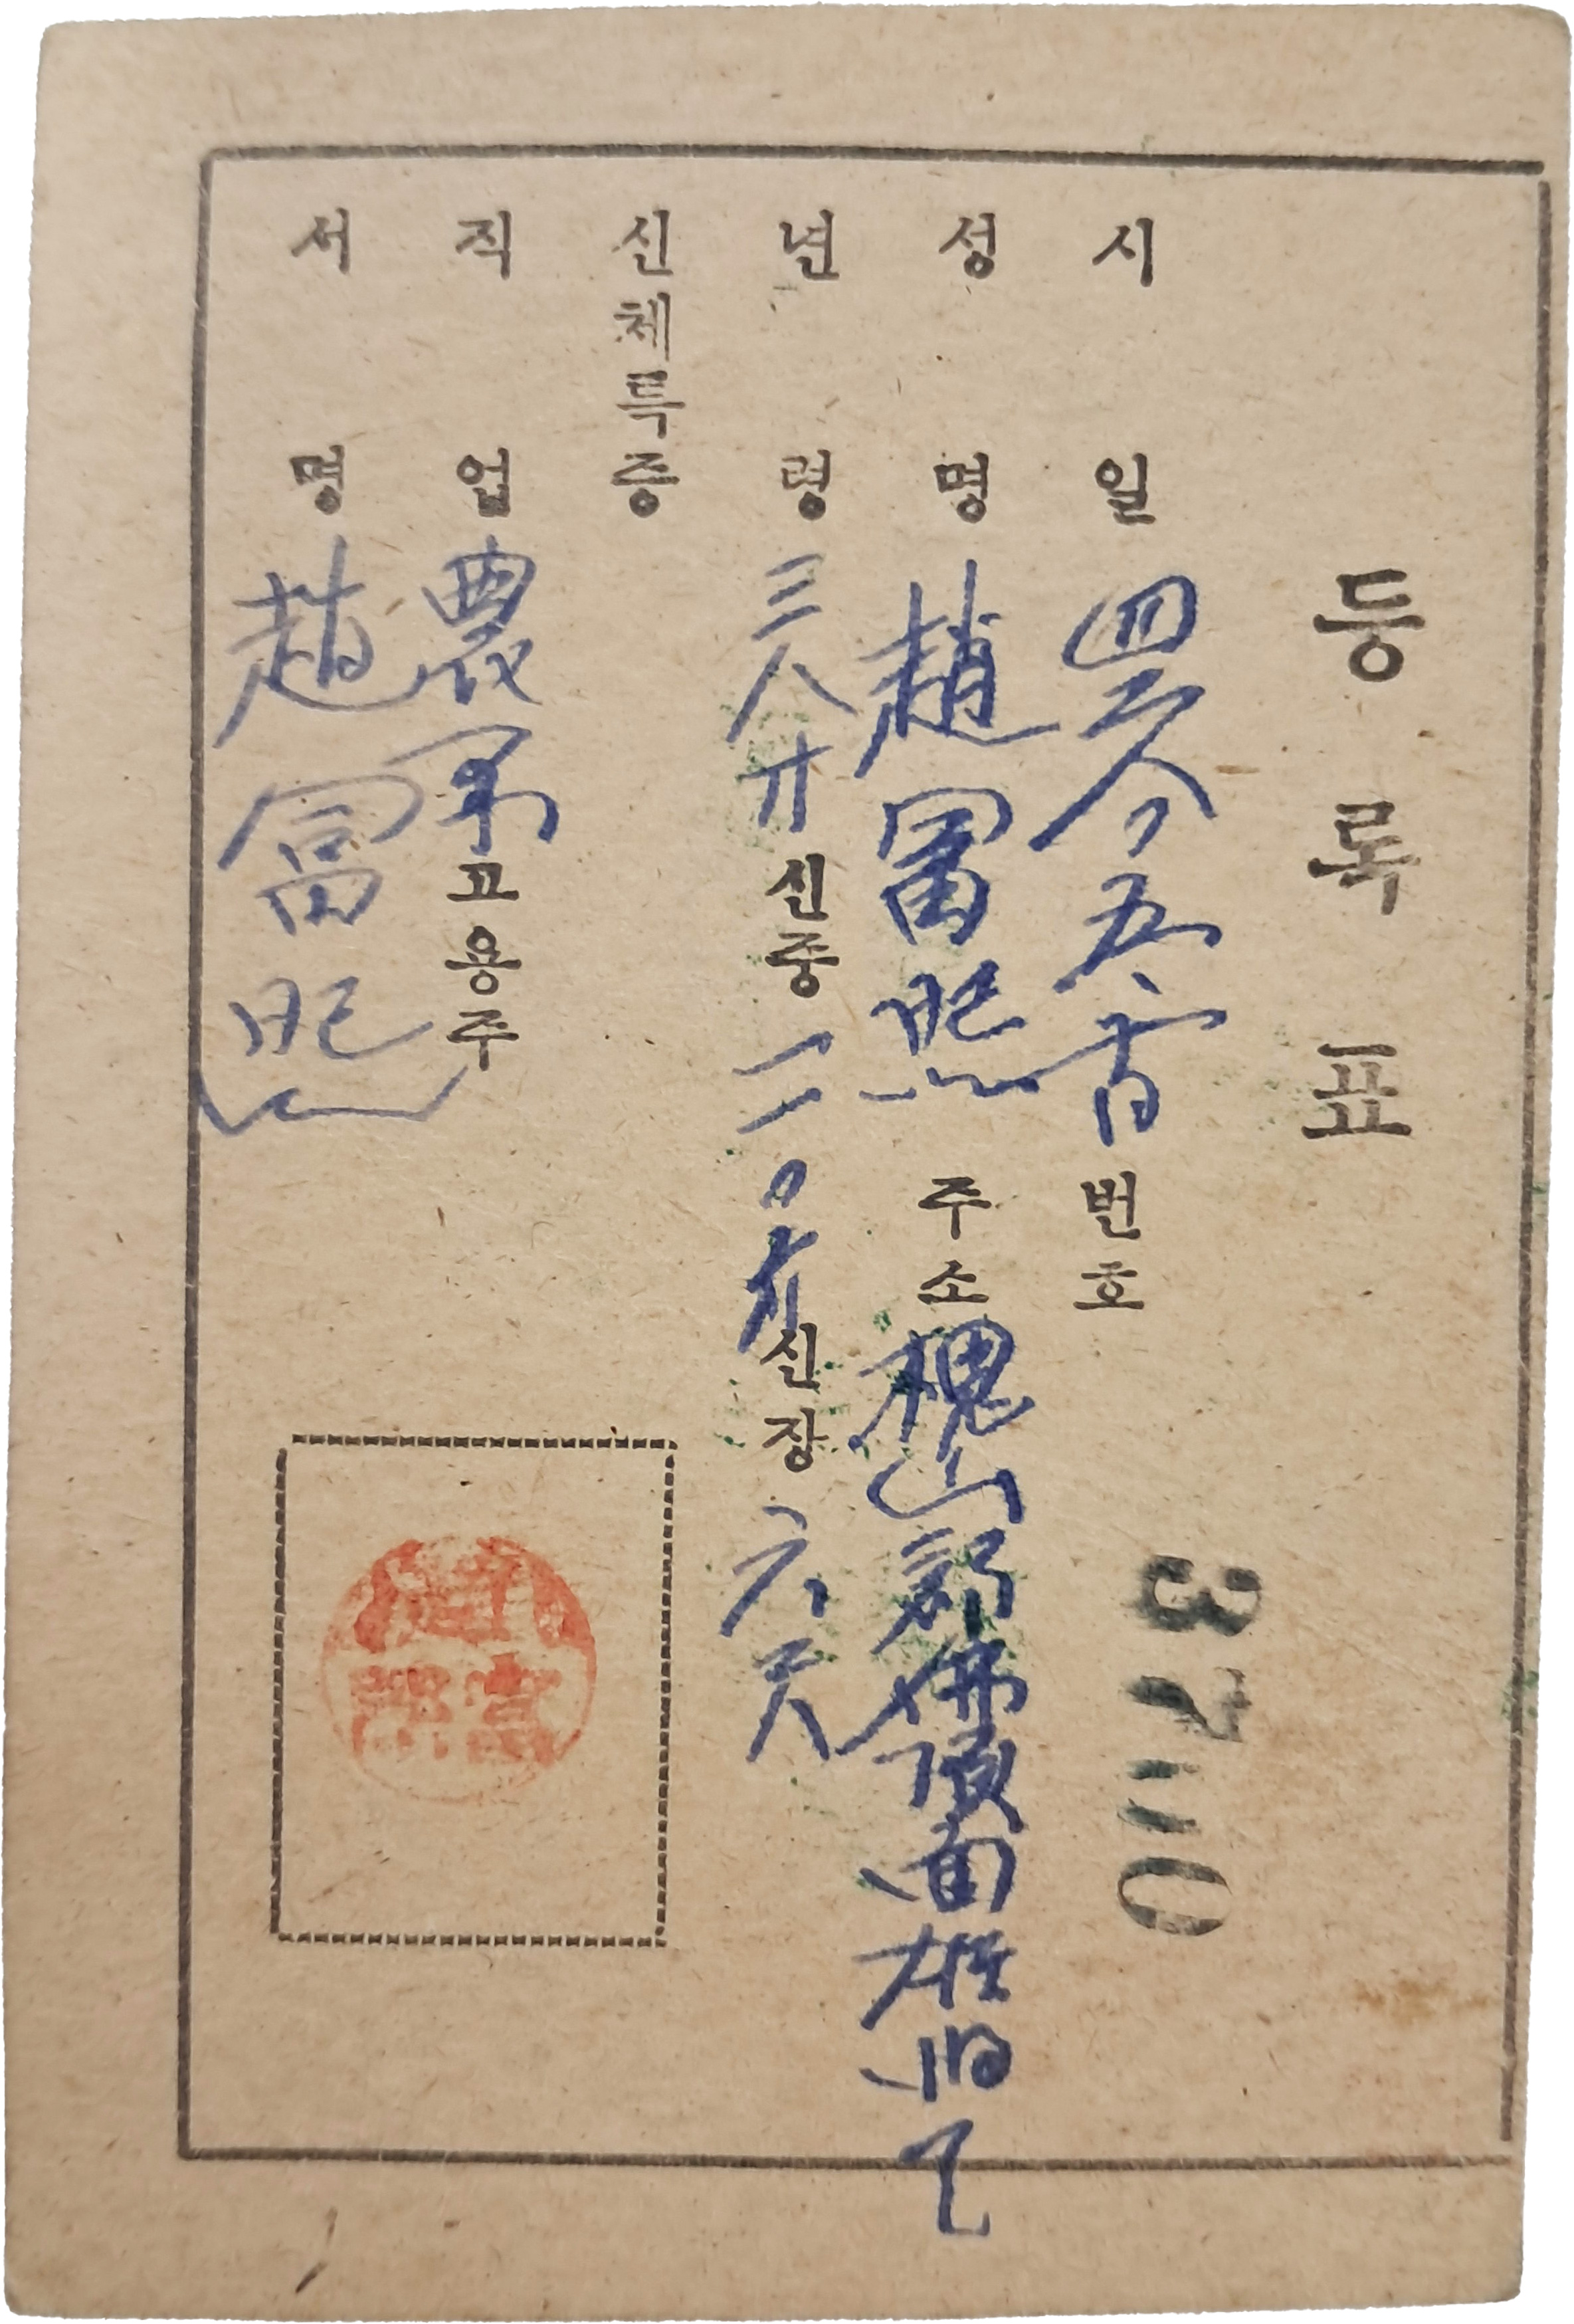 등록표
시일 四 五 번호 3210
성명 趙富熙 주소 槐山郡佛頂面
년령 三八才 신중 一一〇斤 신장 六尺
신체특증
직업 農 고용주
서명 趙富熙